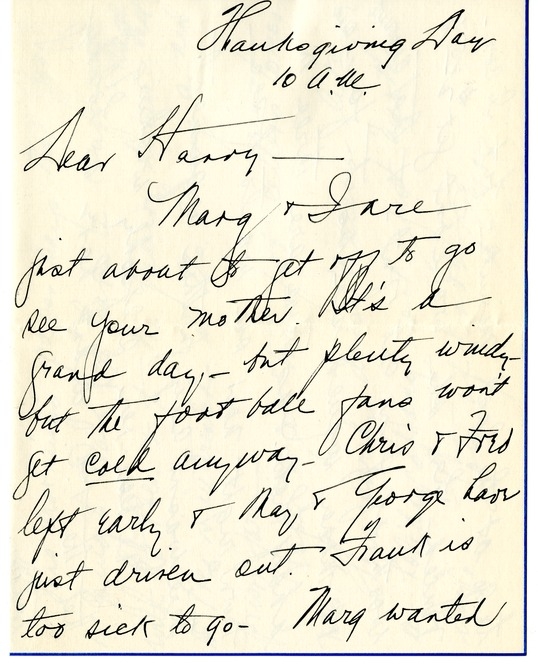 Thanksgiving Day
10 A.M.
Dear Harry —
Marg & I are
just about to get off to go
see your mother. It's a
grand day, – but plenty windy –
but the foot ball fans won't
get cold anyway – Chris & Fred
left early & May & George have
just driven out. Frank is
too sick to go – Marg wanted